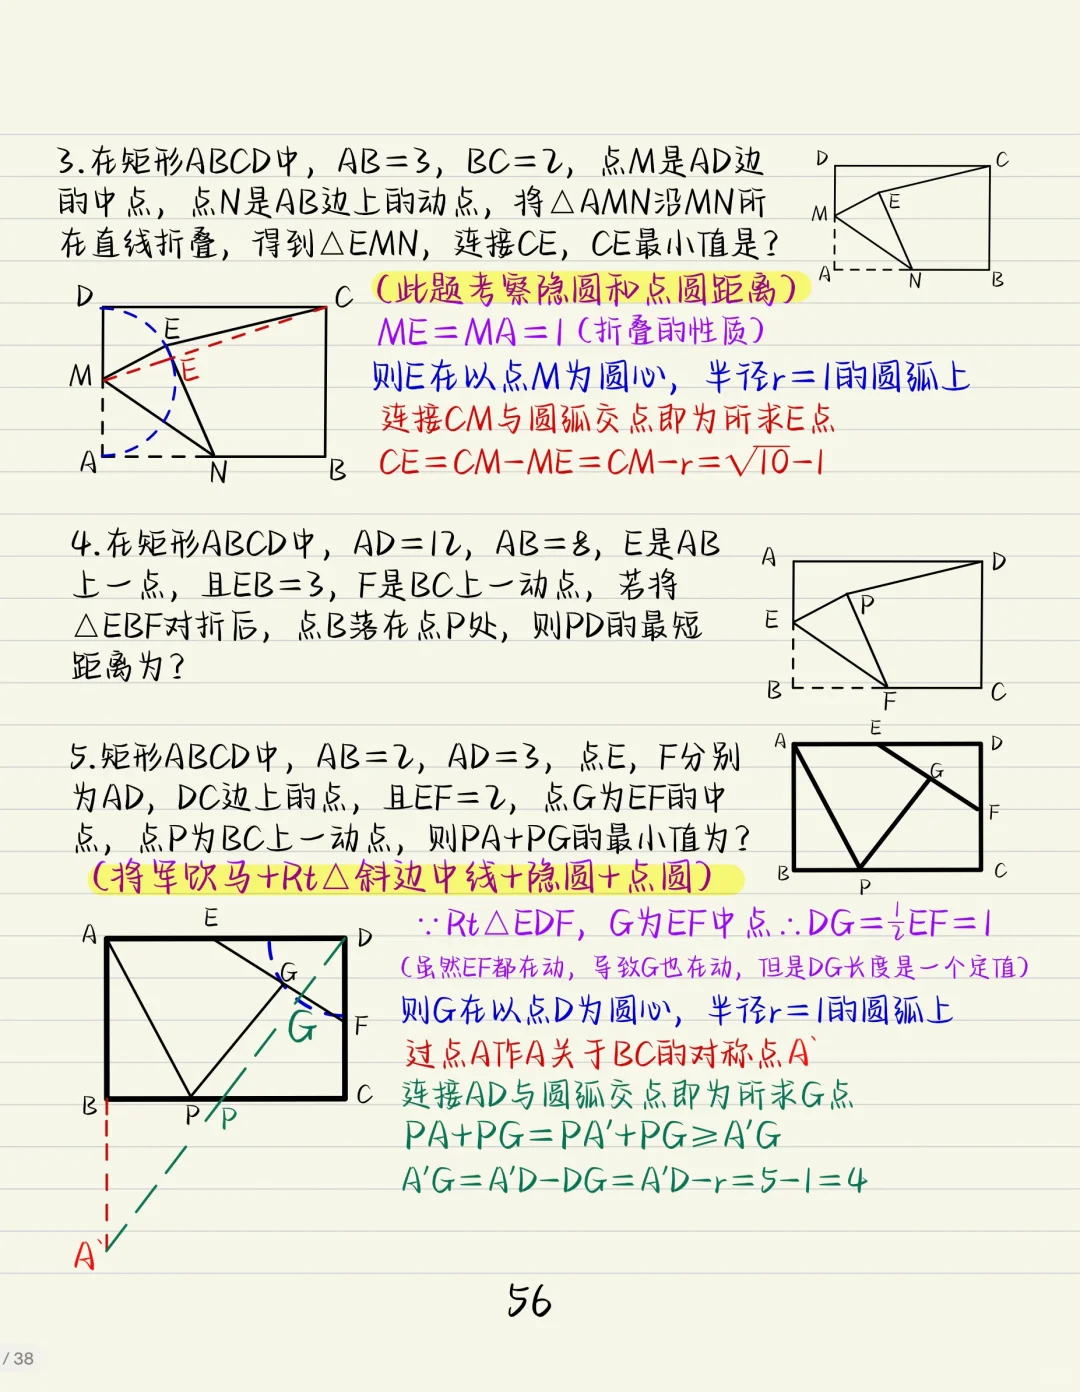 3.在矩形ABCD中，AB=3，BC=2，点M是AD边
的中点，点N是AB边上的动点，将△AMN沿MN所
在直线折叠，得到△EMN，连接CE，CE最小值是？
D
C
M
E
A
N
B
(此题考察隐圆和点圆距离)
ME=MA=1(折叠的性质)
则E在以点M为圆心，半径r=1的圆弧上
连接CM与圆弧交点即为所求E点
CE=CM-ME=CM-r=√10-1
D
C
E
M
E
A
N
B
4.在矩形ABCD中，AD=12，AB=8，E是AB
上一点，且EB=3，F是BC上一动点，若将
△EBF对折后，点B落在点P处，则PD的最短
距离为？
A
D
P
E
B
F
C
5.矩形ABCD中，AB=2，AD=3，点E，F分别
为AD，DC边上的点，且EF=2，点G为EF的中
点，点P为BC上一动点，则PA+PG的最小值为？
A
E
D
G
F
B
P
C
(将军饮马+Rt△斜边中线+隐圆+点圆)
∵Rt△EDF，G为EF中点∴DG=½EF=1
(虽然EF都在动，导致G也在动，但是DG长度是一个定值)
则G在以点D为圆心，半径r=1的圆弧上
过点A作A关于BC的对称点A`
连接AD与圆弧交点即为所求G点
PA+PG=PA'+PG≥A'G
A'G=A'D-DG=A'D-r=5-1=4
A
E
D
G
G
F
B
P
P
C
A`
56
/ 38